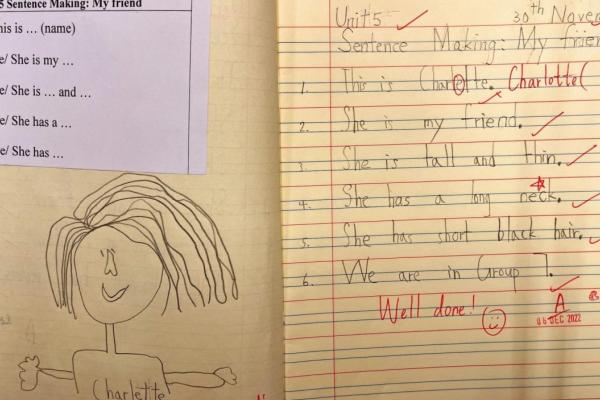 5 Sentence Making: My friend
his is … (name)
e/ She is my …
e/ She is … and …
e/ She has a …
e/ She has …
Charlette
Unit 5 30th Novem
Sentence Making: My frien
1. This is Charlette. Charlotte(
2. She is my friend.
3. She is tall and thin.
4. She has a long neck.
5. She has short black hair.
6. We are in Group 7.
Well done! A
06 DEC 2022